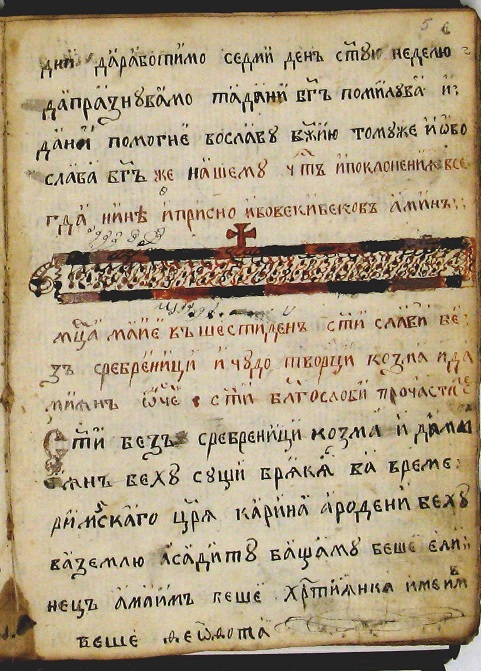 дни дарабютимо седми денъ ст҃ую неделю
дапразнувамо тадани бг҃ъ помилува и
дани помогне вославу бж҃ию томуже иѡво
слава бг҃ъ же нашему чт҃ъ ипоклонение все
гда нинѣ иприсно ивовекивековъ аминъ
мц҃а маие въ шестиденъ ст҃и слави бе
зъ сребреници и чудо творци козма ида
миянъ ѡч҃е ст҃и бл҃гослови прочасти
Ст҃и безъ сребреници козма и дами
янъ беху сущи бряки ва време
римскаго цр҃я карина ародени беху
ваземлю асадиту башаму беше ели
нецъ амаимъ беше хрт҃иянка имеим
беше ѳеѡдота